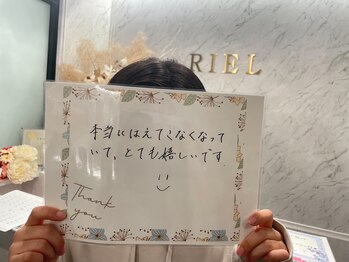 RIEL
本当にはえてこなくなって
いて、とても嬉しいです
Thank
you